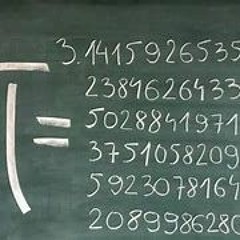 3.1415926535
2384626433
π = 5028841971
3751058209
5923078164
2089986280